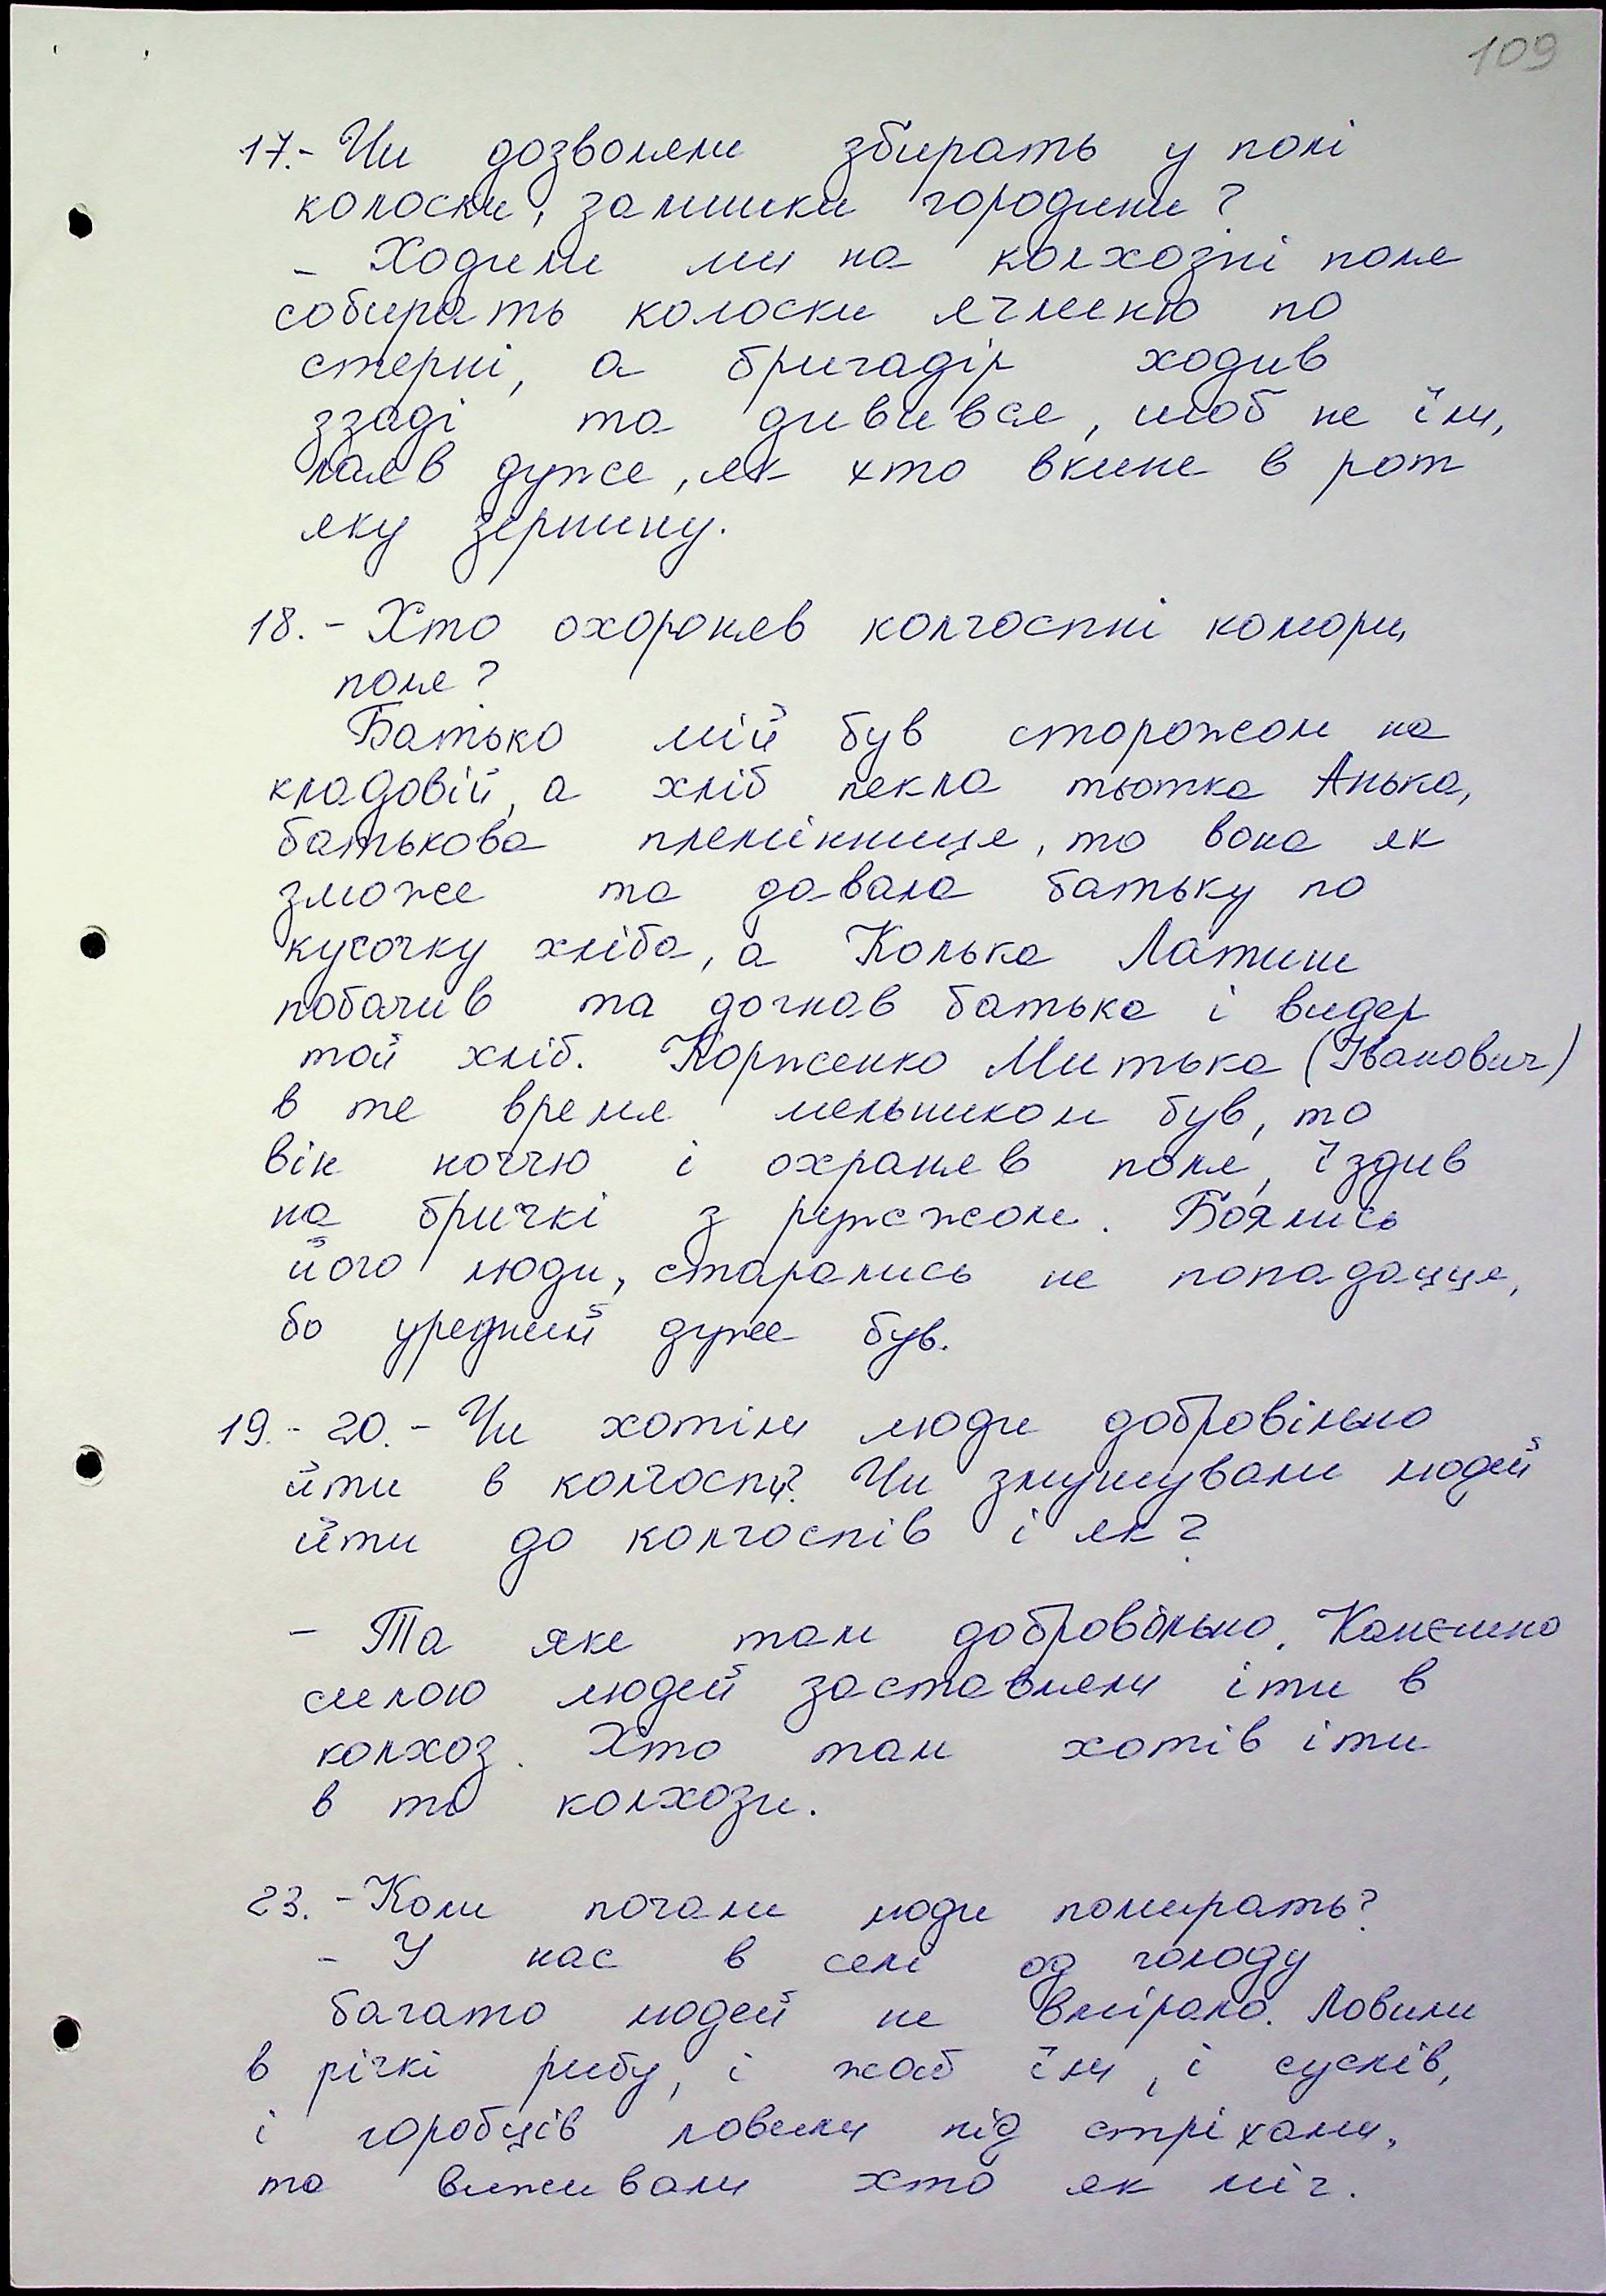 109
17.- Чи дозволяли збирать у полі
колоски, залишки городини?
- Ходили ми на колхозні поля
собирать колоски ячменю по
стерні, а бригадір ходив
ззаді та дивився, щоб не їли,
лаяв дуже, як хто вкине в рот
яку зернину.
18. - Хто охороняв колгоспні комори,
поля?
Батько мій був сторожом на
кладовій, а хліб пекла тьотка Анька,
батькова племінниця, то вона як
зможе та давала батьку по
кусочку хліба, а Колька Латиш
побачив та догнав батька і видер
той хліб. Корженко Митька (Іванович)
в те время мельником був, то
він ноччю і охраняв поля, їздив
на бричкі з ружжом. Боялись
його люди, старались не попадацця,
бо уредний дуже був.
19.- 20.- Чи хотіли люди добровільно
йти в колгосп? Чи змушували людей
йти до колгоспів і як?
- Та яке там добровільно. Канєшно
силою людей заставляли іти в
колхоз. Хто там хотів іти
в ті колхози.
23. - Коли почали люди помирать?
- У нас в селі од голоду
багато людей не вмірало. Ловили
в річкі рибу, і жаб їли, і суслів,
і горобців ловили під стріхами,
та виживали хто як міг.